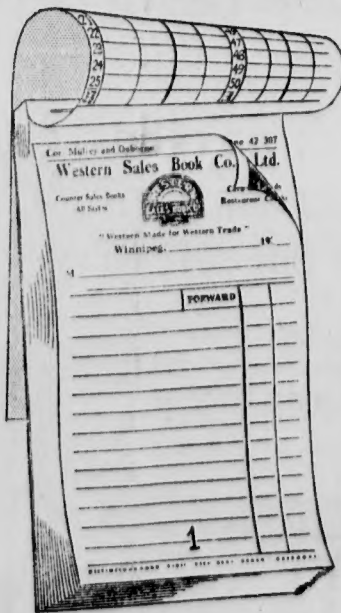 22
23
24
25
47
48
49
50
Cor. Mulvey and Osborne 42 307
Western Sales Book Co. Ltd.
Counter Sales Books
All Styles
Restaurant
"Western Made for Western Trade"
Winnipeg, 19
M
FORWARD
1